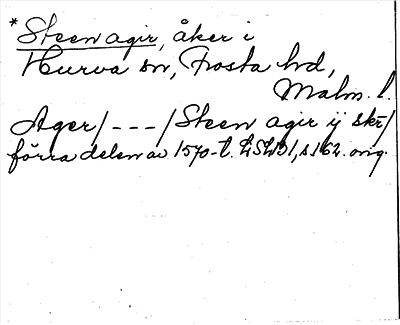 * Steen agir, åker i
Hurva sn, Frosta hd,
Malm. l.
Ager/---/Steen agir ij skr/
förra delen av 1570-t. s. 162. orig.